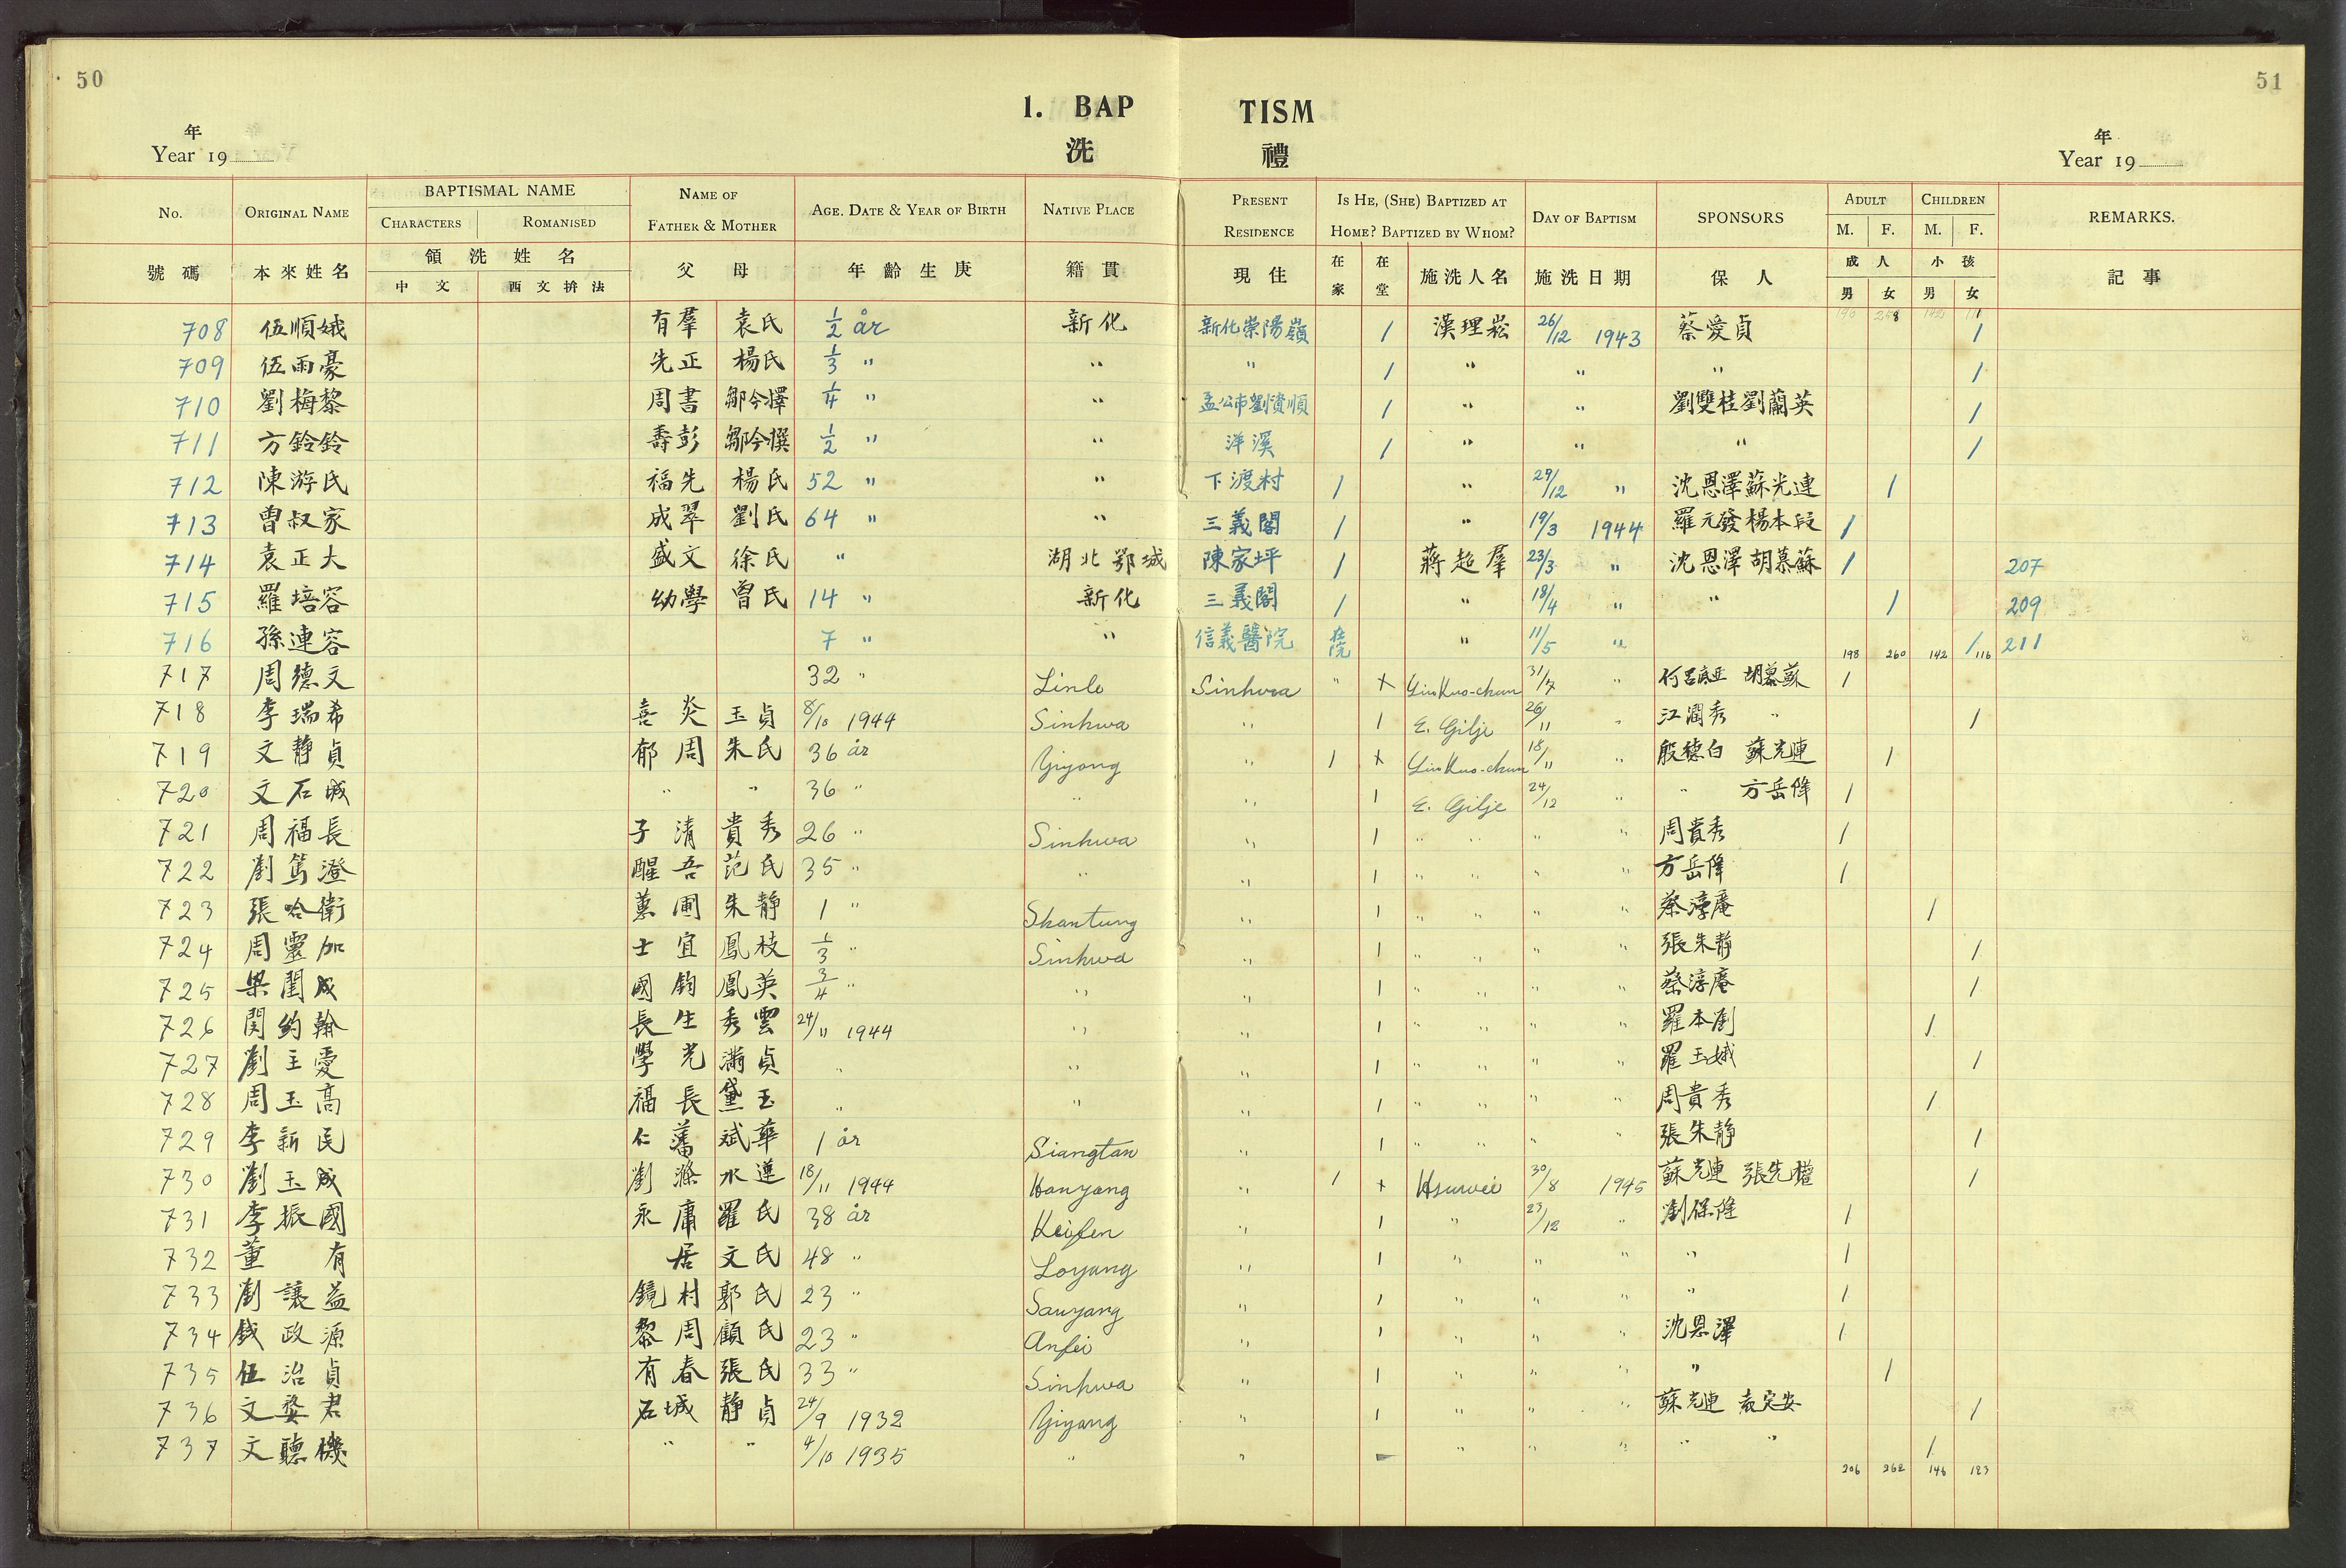 50
51
1. BAP TISM
洗 禮
年
Year 19
年
Year 19
No. ORIGINAL NAME BAPTISMAL NAME CHARACTERS ROMANISED NAME OF FATHER & MOTHER AGE. DATE & YEAR OF BIRTH NATIVE PLACE PRESENT RESIDENCE IS HE, (SHE) BAPTIZED AT HOME? BAPTIZED BY WHOM? DAY OF BAPTISM SPONSORS ADULT M. F. CHILDREN M. F. REMARKS.
號碼 本來姓名 領洗姓名 中文 西文拚法 父母 年齡生庚 籍貫 現住 在家 在堂 施洗人名 施洗日期 保人 成人 男 女 小孩 男 女 記事
708 伍順娥 有羣 袁氏 1/2 år 新化 新化崇陽嶺 1 漢理崧 26/12 1943 蔡愛貞 1
709 伍雨豪 先正 楊氏 1/3 " " " 1 " " " 1
710 劉梅黎 周書 鄒今擇 1/4 " " 孟公市劉貴順 1 " " 劉雙桂劉蘭英 1
711 方鈴鈴 壽彭 鄒今撰 1/2 " " 洋溪 1 " " " 1
712 陳游氏 福先 楊氏 52 " " 下渡村 1 " 29/12 " 沈恩澤蘇光連 1
713 曾叔家 成翠 劉氏 64 " " 三義閣 1 " 19/3 1944 羅元發楊本段 1
714 袁正大 盛文 徐氏 " 湖北鄂城 陳家坪 1 蔣超羣 23/3 " 沈恩澤胡慕蘇 1 207
715 羅培容 幼學 曾氏 14 " 新化 三義閣 1 " 18/4 " " 1 209
716 孫連容 7 " " 信義醫院 在院 " 11/5 " 1 211
198 260 142 116
717 周德文 32 " Linli Sinhwa " + Liu Kuo-chun 31/7 " 胡慕蘇 1
718 李瑞希 喜炎 玉貞 8/10 1944 Sinhwa " 1 E. Gilje 26/11 " 江潤秀 " 1
719 文靜貞 郁周 朱氏 36 år Yiyang " 1 + Liu Kuo-chun 18/11 " 殷德白 蘇光連 1
720 文石城 " " 36 " " " 1 E. Gilje 24/12 " " 方岳峰 1
721 周福長 子清 貴秀 26 " Sinhwa " 1 " " " " 周貴秀 1
722 劉篤澄 醒吾 范氏 35 " " " 1 " " " " 方岳峰 1
723 張哈衛 蕙圃 朱靜 1 " Shantung " 1 " " " " 蔡淳庵 1
724 周靈加 士宜 鳳枝 1/3 " Sinhwa " 1 " " " " 張朱靜 1
725 梁閨成 國鈞 鳳英 3/4 " " " 1 " " " " 蔡淳庵 1
726 閔約翰 長生 秀雲 24/11 1944 " " 1 " " " " 羅本劉 1
727 劉主愛 學光 滿貞 " " " 1 " " " " 羅玉娥 1
728 周玉高 福長 黛玉 " " " 1 " " " " 周貴秀 1
729 李新民 仁藩 斌華 1 år Siangtan " 1 " " " " 張朱靜 1
730 劉玉成 劉滌 水蓮 18/11 1944 Hanyang " 1 + Hsuwei 30/8 1945 蘇光連 張先 1
731 李振國 永庸 羅氏 38 år Keifen " 1 " 23/12 " 劉保隆 1
732 董有 居 文氏 48 " Loyang " 1 " " " " 1
733 劉讓益 鏡村 郭氏 23 " Sauyang " 1 " " " " 1
734 錢政源 黎周 顧氏 23 " Anfei " 1 " " " 沈恩澤 1
735 伍治貞 有春 張氏 33 " Sinhwa " 1 " " " " 1
736 文婺君 石城 靜貞 24/9 1932 Yiyang " 1 " " " 蘇光連 袁定安 1
737 文聽機 " " 4/10 1935 " " " " " " " 1
206 262 146 123